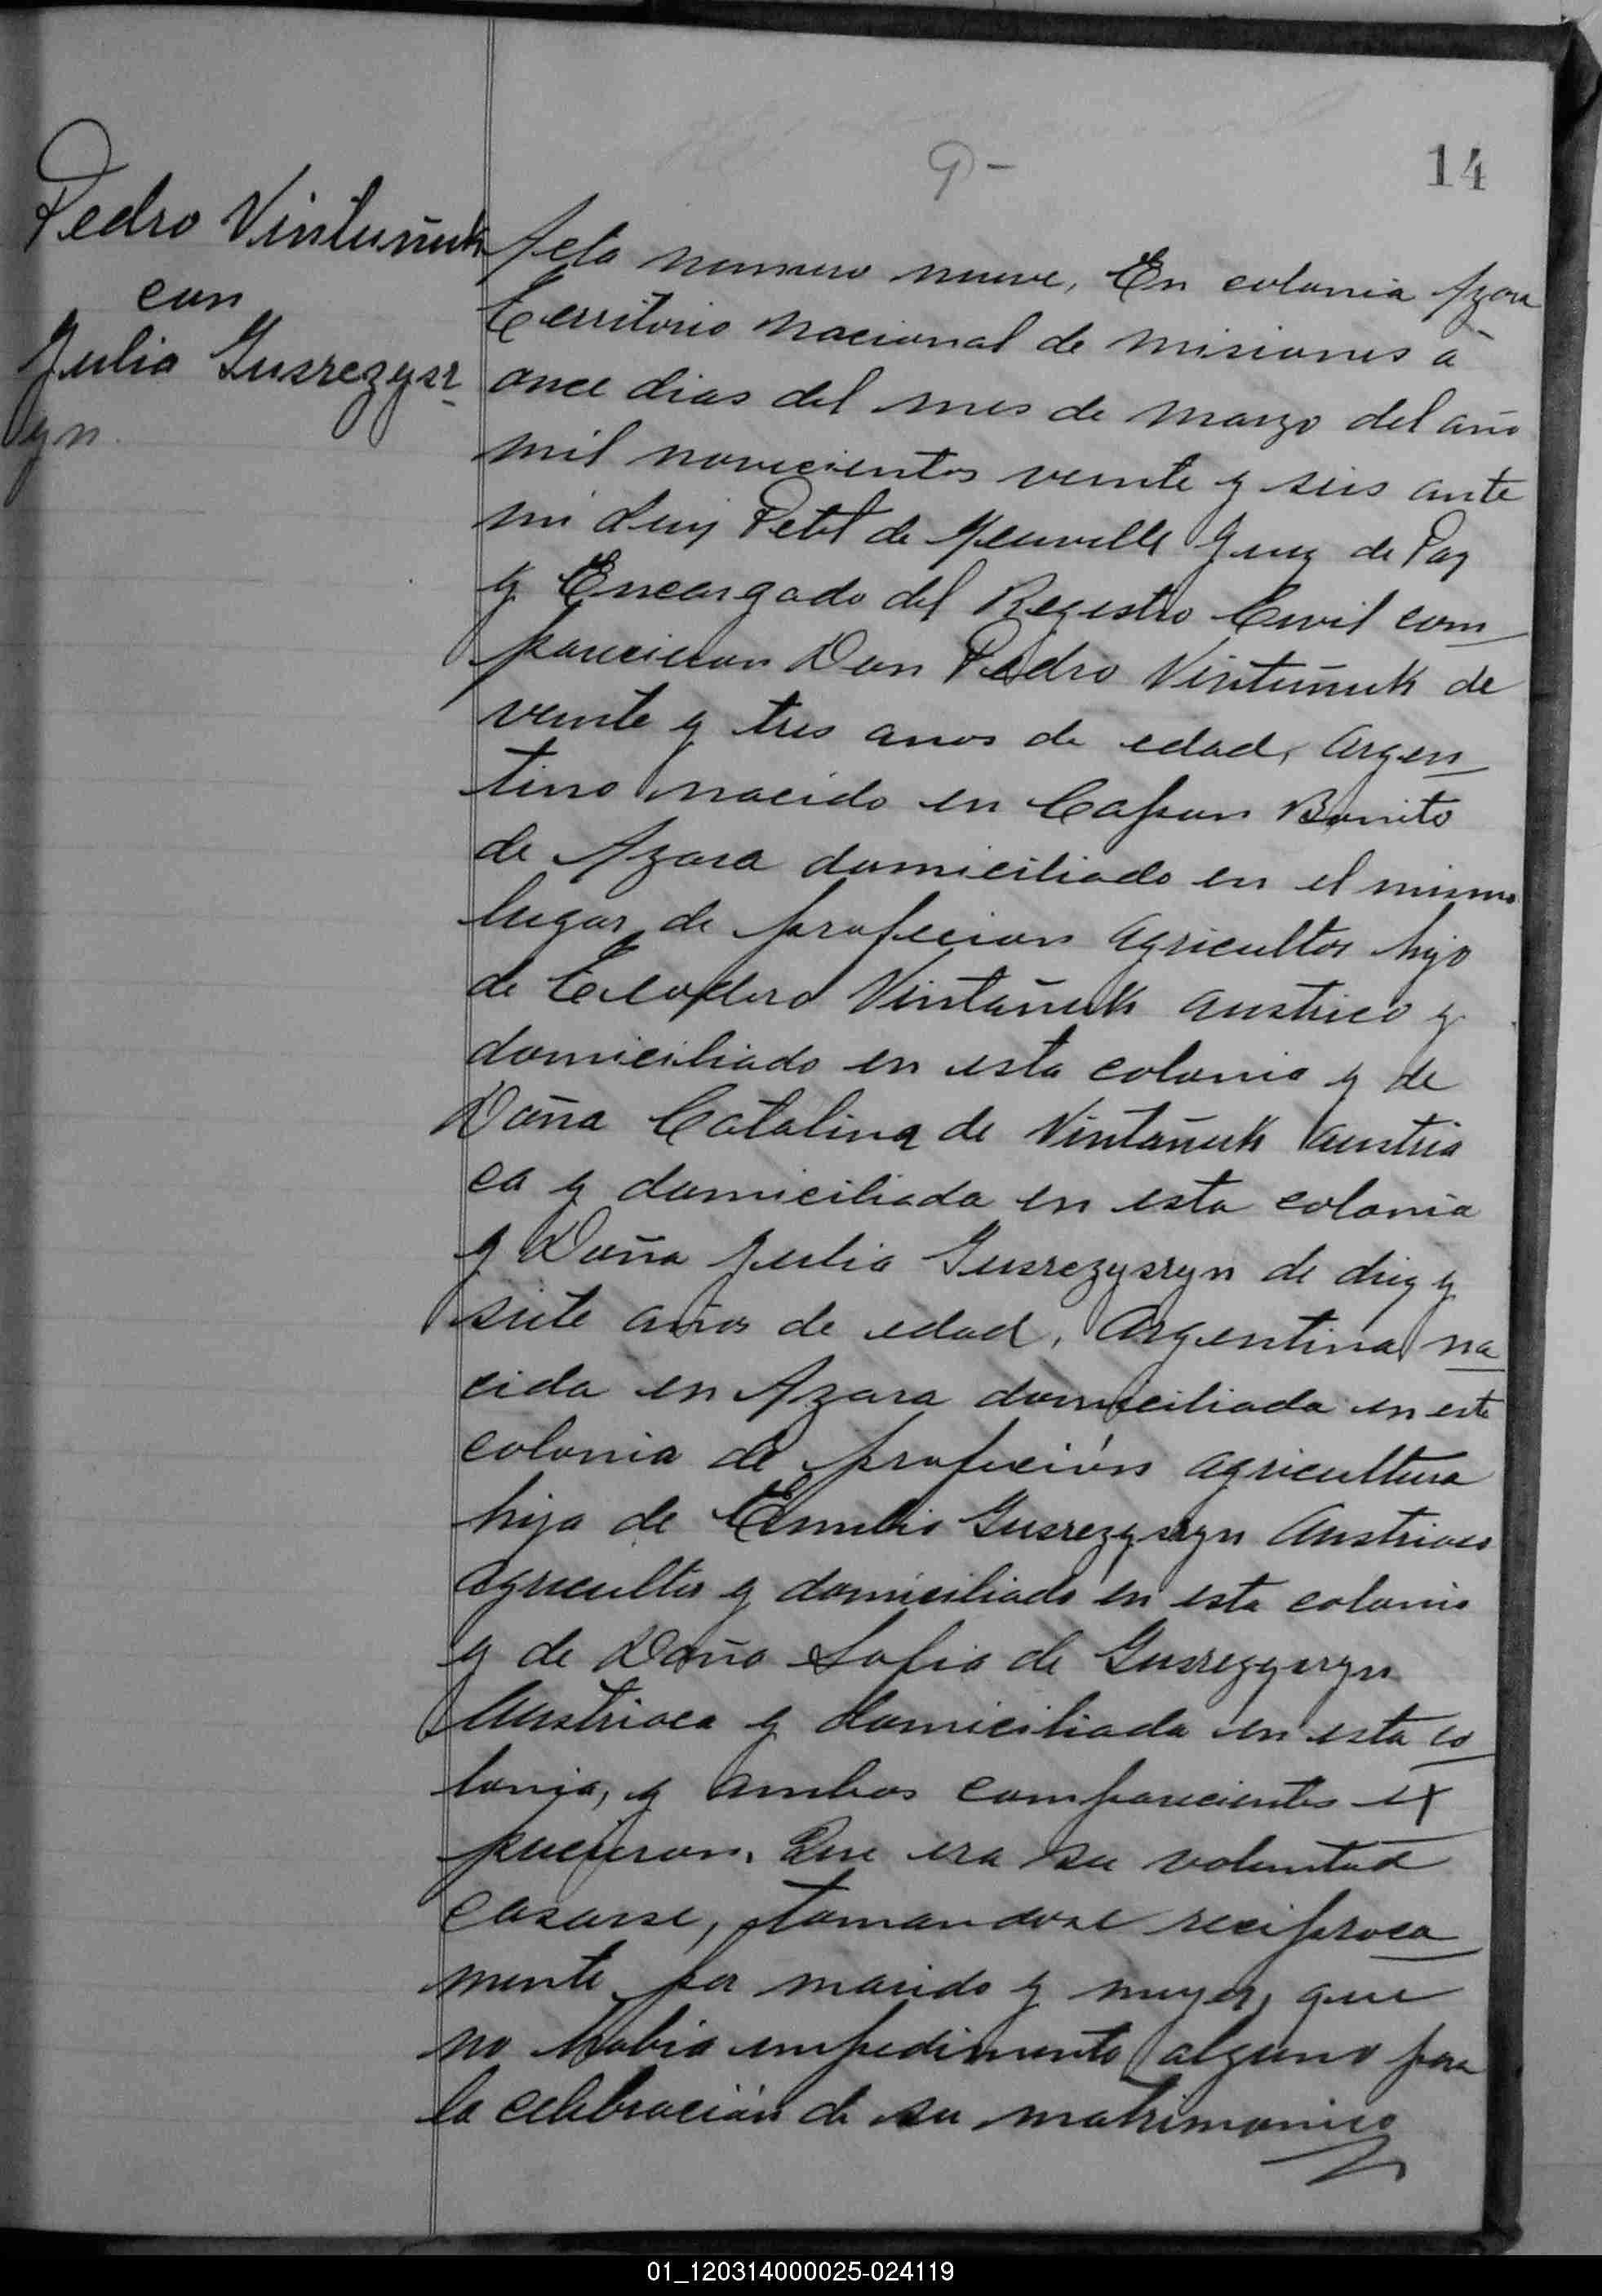 14
9-
Pedro Vintuñuk
con
Julia Gusrezysr-
yn.
Acta numero nueve, En colonia Azara
Territorio Nacional de Misiones a
once dias del mes de Marzo del año
mil novecientos veinte y seis ante
mi Luis Petit de Meurville Juez de Paz
y Encargado del Registro Civil com-
parecieron Don Pedro Vintuñuk de
veinte y tres anos de edad, Argen-
tino nacido en Capon Bonito
de Azara domiciliado en el mismo
lugar de profecion agricultor hijo
de Vintañuk austrico y
domiciliado en esta colonia y de
Doña Catalina de Vintañuk Austria
ca y domiciliada en esta colonia
y Doña Julia Gusrezysryn de diez y
siete años de edad, Argentina na-
cida en Azara domiciliada en esta
colonia de profeción agricultura
hija de Emilio Gusrezysryn Austriaco
agricultor y domiciliado en esta colonia
y de Doña Sofia de Gusrezysryn
Austriaca y domiciliada en esta co-
lonia, y ambos comparecientes ex
pucieron. Que era su voluntad
casarse, tomandose reciproca-
mente por marido y muger, que
no habia impedimento alguno para
la celebración de su matrimonio
01_120314000025-024119